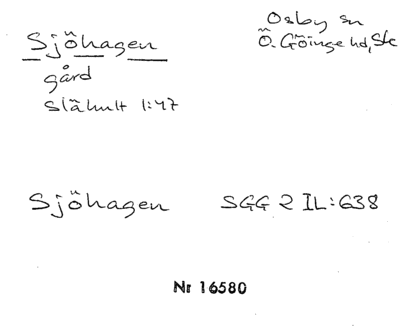 Sjöhagen
Osby sn
Ö. Göinge hd, Sk
gård
Slähult 1:47
Sjöhagen SGG 2 IL:638
Nr 16580